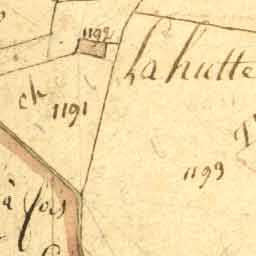 1192
La hutte
ch
1191
1193
à fois